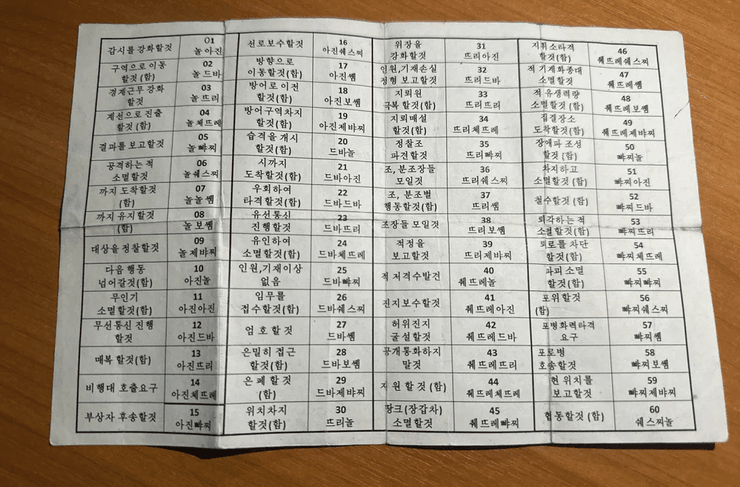 감시를 강화할것
01
놀아진
구역으로 이동
할것(함)
02
놀드바
경계근무 강화
할것
03
놀뜨리
계선으로 진출
할것(함)
04
놀체뜨레
결과를 보고할것
05
놀뺘찌
공격하는 적
소멸할것
06
놀쉐스찌
까지 도착할것(함)
07
놀놀쎔
까지 유지할것
(함)
08
놀보쎔
대상을 정찰할것
09
놀제뱌찌
다음 행동
넘어갈것(함)
10
아진놀
무인기
소멸할것(함)
11
아진아진
무선통신 진행
할것
12
아진드바
매복 할것(함)
13
아진뜨리
비행대 호출요구
14
아진체뜨레
부상자 후송할것
15
아진뺘찌
선로보수할것
16
아진쉐스찌
방향으로
이동할것(함)
17
아진쎔
방어로 이전
할것(함)
18
아진보쎔
방어구역차지
할것(함)
19
아진제뱌찌
습격을 개시
할것(함)
20
드바놀
시까지
도착할것(함)
21
드바아진
우회하여
타격할것(함)
22
드바드바
유선통신
진행할것
23
드바뜨리
유인하여
소멸할것(함)
24
드바체뜨레
인원,기재이상
없음
25
드바뺘찌
임무를
접수할것(함)
26
드바쉐스찌
엄호할것
27
드바쎔
은밀히 접근
할것(함)
28
드바보쎔
은폐할것
(함)
29
드바제뱌찌
위치차지
할것(함)
30
뜨리놀
위장을
강화할것
31
뜨리아진
인원,기재손실
정형 보고할것
32
뜨리드바
지뢰원
극복할것(함)
33
뜨리뜨리
지뢰매설
할것(함)
34
뜨리체뜨레
정찰조
파견할것
35
뜨리뺘찌
조, 분조장들
모일것
36
뜨리쉐스찌
조, 분조별
행동할것(함)
37
뜨리쎔
조장들 모일것
38
뜨리보쎔
적정을
보고할것
39
뜨리제뱌찌
적 저격수발견
40
체뜨레놀
진지보수할것
41
체뜨레아진
허위진지
굴설할것
42
체뜨레드바
공개통화하지
말것
43
체뜨레뜨리
자원할것(함)
44
체뜨레체뜨레
땅크(장갑차)
소멸할것
45
체뜨레뺘찌
지휘소타격
할것(함)
46
체뜨레쉐스찌
적 기계화종대
소멸할것
47
체뜨레쎔
적 유생력량
소멸할것(함)
48
체뜨레보쎔
집결장소
도착할것(함)
49
체뜨레제뱌찌
장애파 조성
할것(함)
50
뺘찌놀
차지하고
소멸할것(함)
51
뺘찌아진
철수할것(함)
52
뺘찌드바
퇴각하는 적
소멸할것(함)
53
뺘찌뜨리
퇴로를 차단
할것(함)
54
뺘찌체뜨레
까파 소멸
할것(함)
55
뺘찌뺘찌
포위할것
(함)
56
뺘찌쉐스찌
포병화력타격
요구
57
뺘찌쎔
포로병
호송할것
58
뺘찌보쎔
현 위치를
보고할것
59
뺘찌제뱌찌
협동할것(함)
60
쉐스찌놀